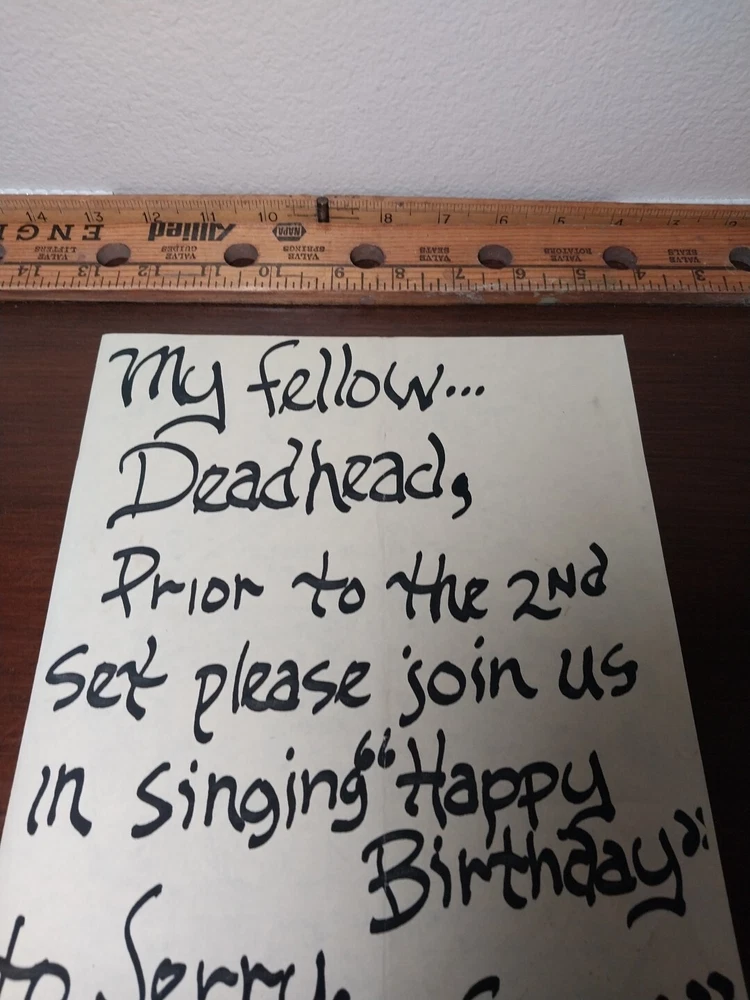 14 13 12 11 10 8 7 6 5 4 3 2
ENGI
Allied
NAPA
VALVE LIFTERS
VALVE GUIDES
VALVE SPRINGS
VALVE SEATS
VALVE ROTATORS
VALVE SEALS
14 13 12 11 10 9 8 7 6 5 4 3
My fellow...
Deadhead,
Prior to the 2nd
set please join us
in singing "Happy
Birthday"
to Jerry